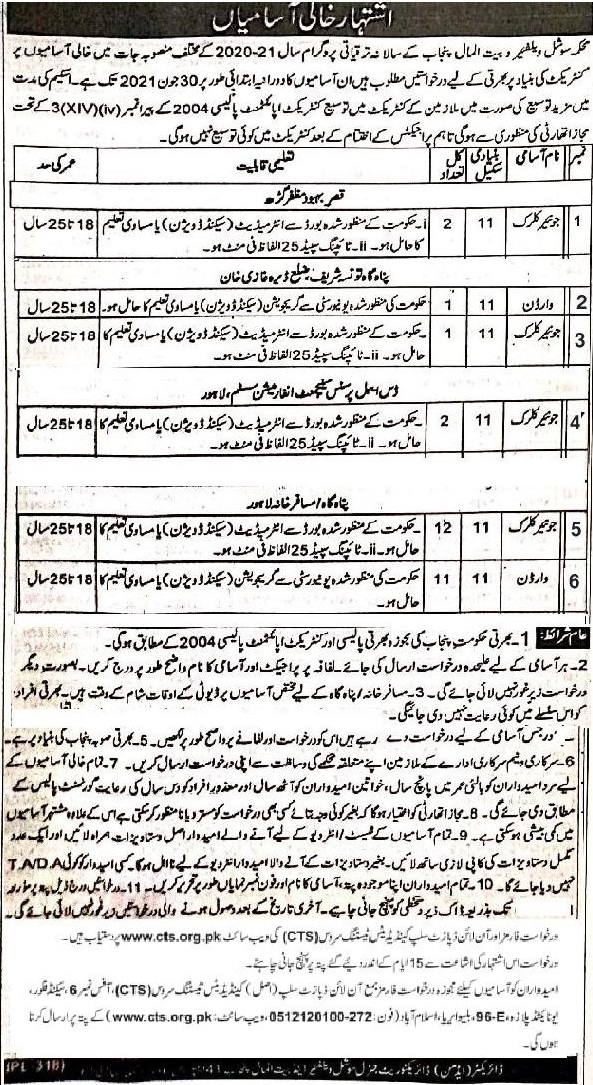 اشتہار خالی آسامیاں
محکمہ سوشل ویلفیئر و بیت المال پنجاب کے سالانہ ترقیاتی پروگرام سال 21-2020 کے مختلف منصوبہ جات میں خالی آسامیوں پر
کنٹریکٹ کی بنیاد پر بھرتی کے لیے درخواستیں مطلوب ہیں ان آسامیوں کا دورانیہ ابتدائی طور پر 30 جون 2021 تک ہے۔ اسکیم کی مدت
میں مزید توسیع کی صورت میں ملازمین کے کنٹریکٹ میں توسیع کنٹریکٹ اپائنٹمنٹ پالیسی 2004 کے پیرا نمبر (iv)(XIV)3 کے تحت
مجاز اتھارٹی کی منظوری سے ہوگی تاہم پراجیکٹس کے اختتام کے بعد کنٹریکٹ میں کوئی توسیع نہیں ہوگی۔
نمبر نام آسامی بنیادی سکیل کل تعداد تعلیمی قابلیت عمر کی حد
قصر بہبود مظفر گڑھ
1 جونیئر کلرک 11 2 i۔ حکومت کے منظور شدہ بورڈ سے انٹرمیڈیٹ (سیکنڈ ڈویژن) یا مساوی تعلیم 18 تا 25 سال
کا حامل ہو۔ ii۔ ٹائپنگ سپیڈ 25 الفاظ فی منٹ ہو۔
پناہ گاہ تونسہ شریف ضلع ڈیرہ غازی خان
2 وارڈن 11 1 حکومت کی منظور شدہ یونیورسٹی سے گریجویشن (سیکنڈ ڈویژن) یا مساوی تعلیم کا حامل ہو۔ 18 تا 25 سال
3 جونیئر کلرک 11 1 ۔ حکومت کے منظور شدہ بورڈ سے انٹرمیڈیٹ (سیکنڈ ڈویژن) یا مساوی تعلیم کا 18 تا 25 سال
حامل ہو۔ ii۔ ٹائپنگ سپیڈ 25 الفاظ فی منٹ ہو۔
ڈس ایبل پرسنس مینجمنٹ انفارمیشن سسٹم، لاہور
4 جونیئر کلرک 11 2 ۔ حکومت کے منظور شدہ بورڈ سے انٹرمیڈیٹ (سیکنڈ ڈویژن) یا مساوی تعلیم کا 18 تا 25 سال
حامل ہو۔ ii۔ ٹائپنگ سپیڈ 25 الفاظ فی منٹ ہو۔
پناہ گاہ/مسافر خانہ لاہور
5 جونیئر کلرک 11 12 ۔ حکومت کے منظور شدہ بورڈ سے انٹرمیڈیٹ (سیکنڈ ڈویژن) یا مساوی تعلیم کا 18 تا 25 سال
حامل ہو۔ ii۔ ٹائپنگ سپیڈ 25 الفاظ فی منٹ ہو۔
6 وارڈن 11 11 حکومت کی منظور شدہ یونیورسٹی سے گریجویشن (سیکنڈ ڈویژن) یا مساوی تعلیم کا 18 تا 25 سال
حامل ہو۔
عام شرائط: 1۔ بھرتی حکومت پنجاب کی مجوزہ بھرتی پالیسی اور کنٹریکٹ اپائنٹمنٹ پالیسی 2004 کے مطابق ہوگی۔
2۔ ہر آسامی کے لیے علیحدہ درخواست ارسال کی جائے۔ لفافہ پر پراجیکٹ اور آسامی کا نام واضح طور پر درج کریں۔ بصورت دیگر
درخواست زیر غور نہیں لائی جائے گی۔ 3۔ مسافر خانہ/پناہ گاہ کے لیے مختص آسامیوں پر ڈیوٹی کے اوقات شام کے وقت ہیں۔ بھرتی افراد
کو اس سلسلے میں کوئی رعایت نہیں دی جائیگی۔
ور جس آسامی کے لیے درخواست دے رہے ہیں اس کو درخواست اور لفافے پر واضح طور پر لکھیں۔ 5۔ بھرتی صوبہ پنجاب کی بنیاد پر ہے۔
6۔ سرکاری و نیم سرکاری ادارے کے ملازمین اپنے متعلقہ محکمے کی وساطت سے اپنی درخواست ارسال کریں۔ 7۔ تمام خالی آسامیوں کے
لیے مرد امیدواران کو بالائی عمر میں پانچ سال، خواتین امیدواران کو آٹھ سال اور معذور افراد کو دس سال کی رعایت گورنمنٹ پالیس کے
مطابق دی جائے گی۔ 8۔ مجاز اتھارٹی کو اختیار ہوگا کہ بغیر کوئی وجہ بتائے کسی بھی درخواست کو مسترد یا نا منظور کر سکتی ہے اس کے علاوہ مشتہر آسامیوں
میں کمی بیشی ہو سکتی ہے۔ 9۔ تمام آسامیوں کے ٹیسٹ/انٹرویو کے لیے آنے والے امیدوار اصل دستاویزات ہمراہ لائیں اور ایک عدد
مکمل دستاویزات کی کاپی لازمی ساتھ لائیں۔ بغیر دستاویزات کے آنے والا امیدوار انٹرویو کے لیے نا اہل ہوگا۔ کسی امیدوار کو کوئی T.A/D.A
نہیں دیا جائے گا۔ 10۔ تمام امیدواران اپنا موجودہ پتہ، آسامی کا نام اور فون نمبر نمایاں طور پر تحریر کریں۔ 11۔ درخواستیں درج ذیل پتہ پر
تک بذریعہ ڈاک زیر دستخطی کو پہنچ جانی چاہیے۔ آخری تاریخ کے بعد وصول ہونے والی درخواستیں زیر غور نہیں لائی جائے گی۔
درخواست فارمز اور آن لائن ڈپازٹ سلپ کینڈیڈیٹس ٹیسٹنگ سروس (CTS) کی ویب سائٹ www.cts.org.pk پر دستیاب ہیں۔
درخواست اس اشتہار کی اشاعت سے 15 ایام کے اندر دیئے گئے پتہ پر پہنچ جانی چاہیئے۔
امیدواران کو آسامیوں کیلئے مجوزہ درخواست فارمز بمع آن لائن ڈپازٹ سلپ (اصل) کینڈیڈیٹس ٹیسٹنگ سروس (CTS)، آفس نمبر 6، سیکنڈ فلور،
یونائیٹڈ پلازہ، 96-E، بلیو ایریا، اسلام آباد (فون: 272-0512120100، ویب سائٹ: www.cts.org.pk) کے پتہ پر ارسال کرنا
ہوں گی۔
ڈائریکٹر (ایڈمن) ڈائریکٹوریٹ جنرل سوشل ویلفیئر اینڈ بیت المال پنجاب (IPL 318)